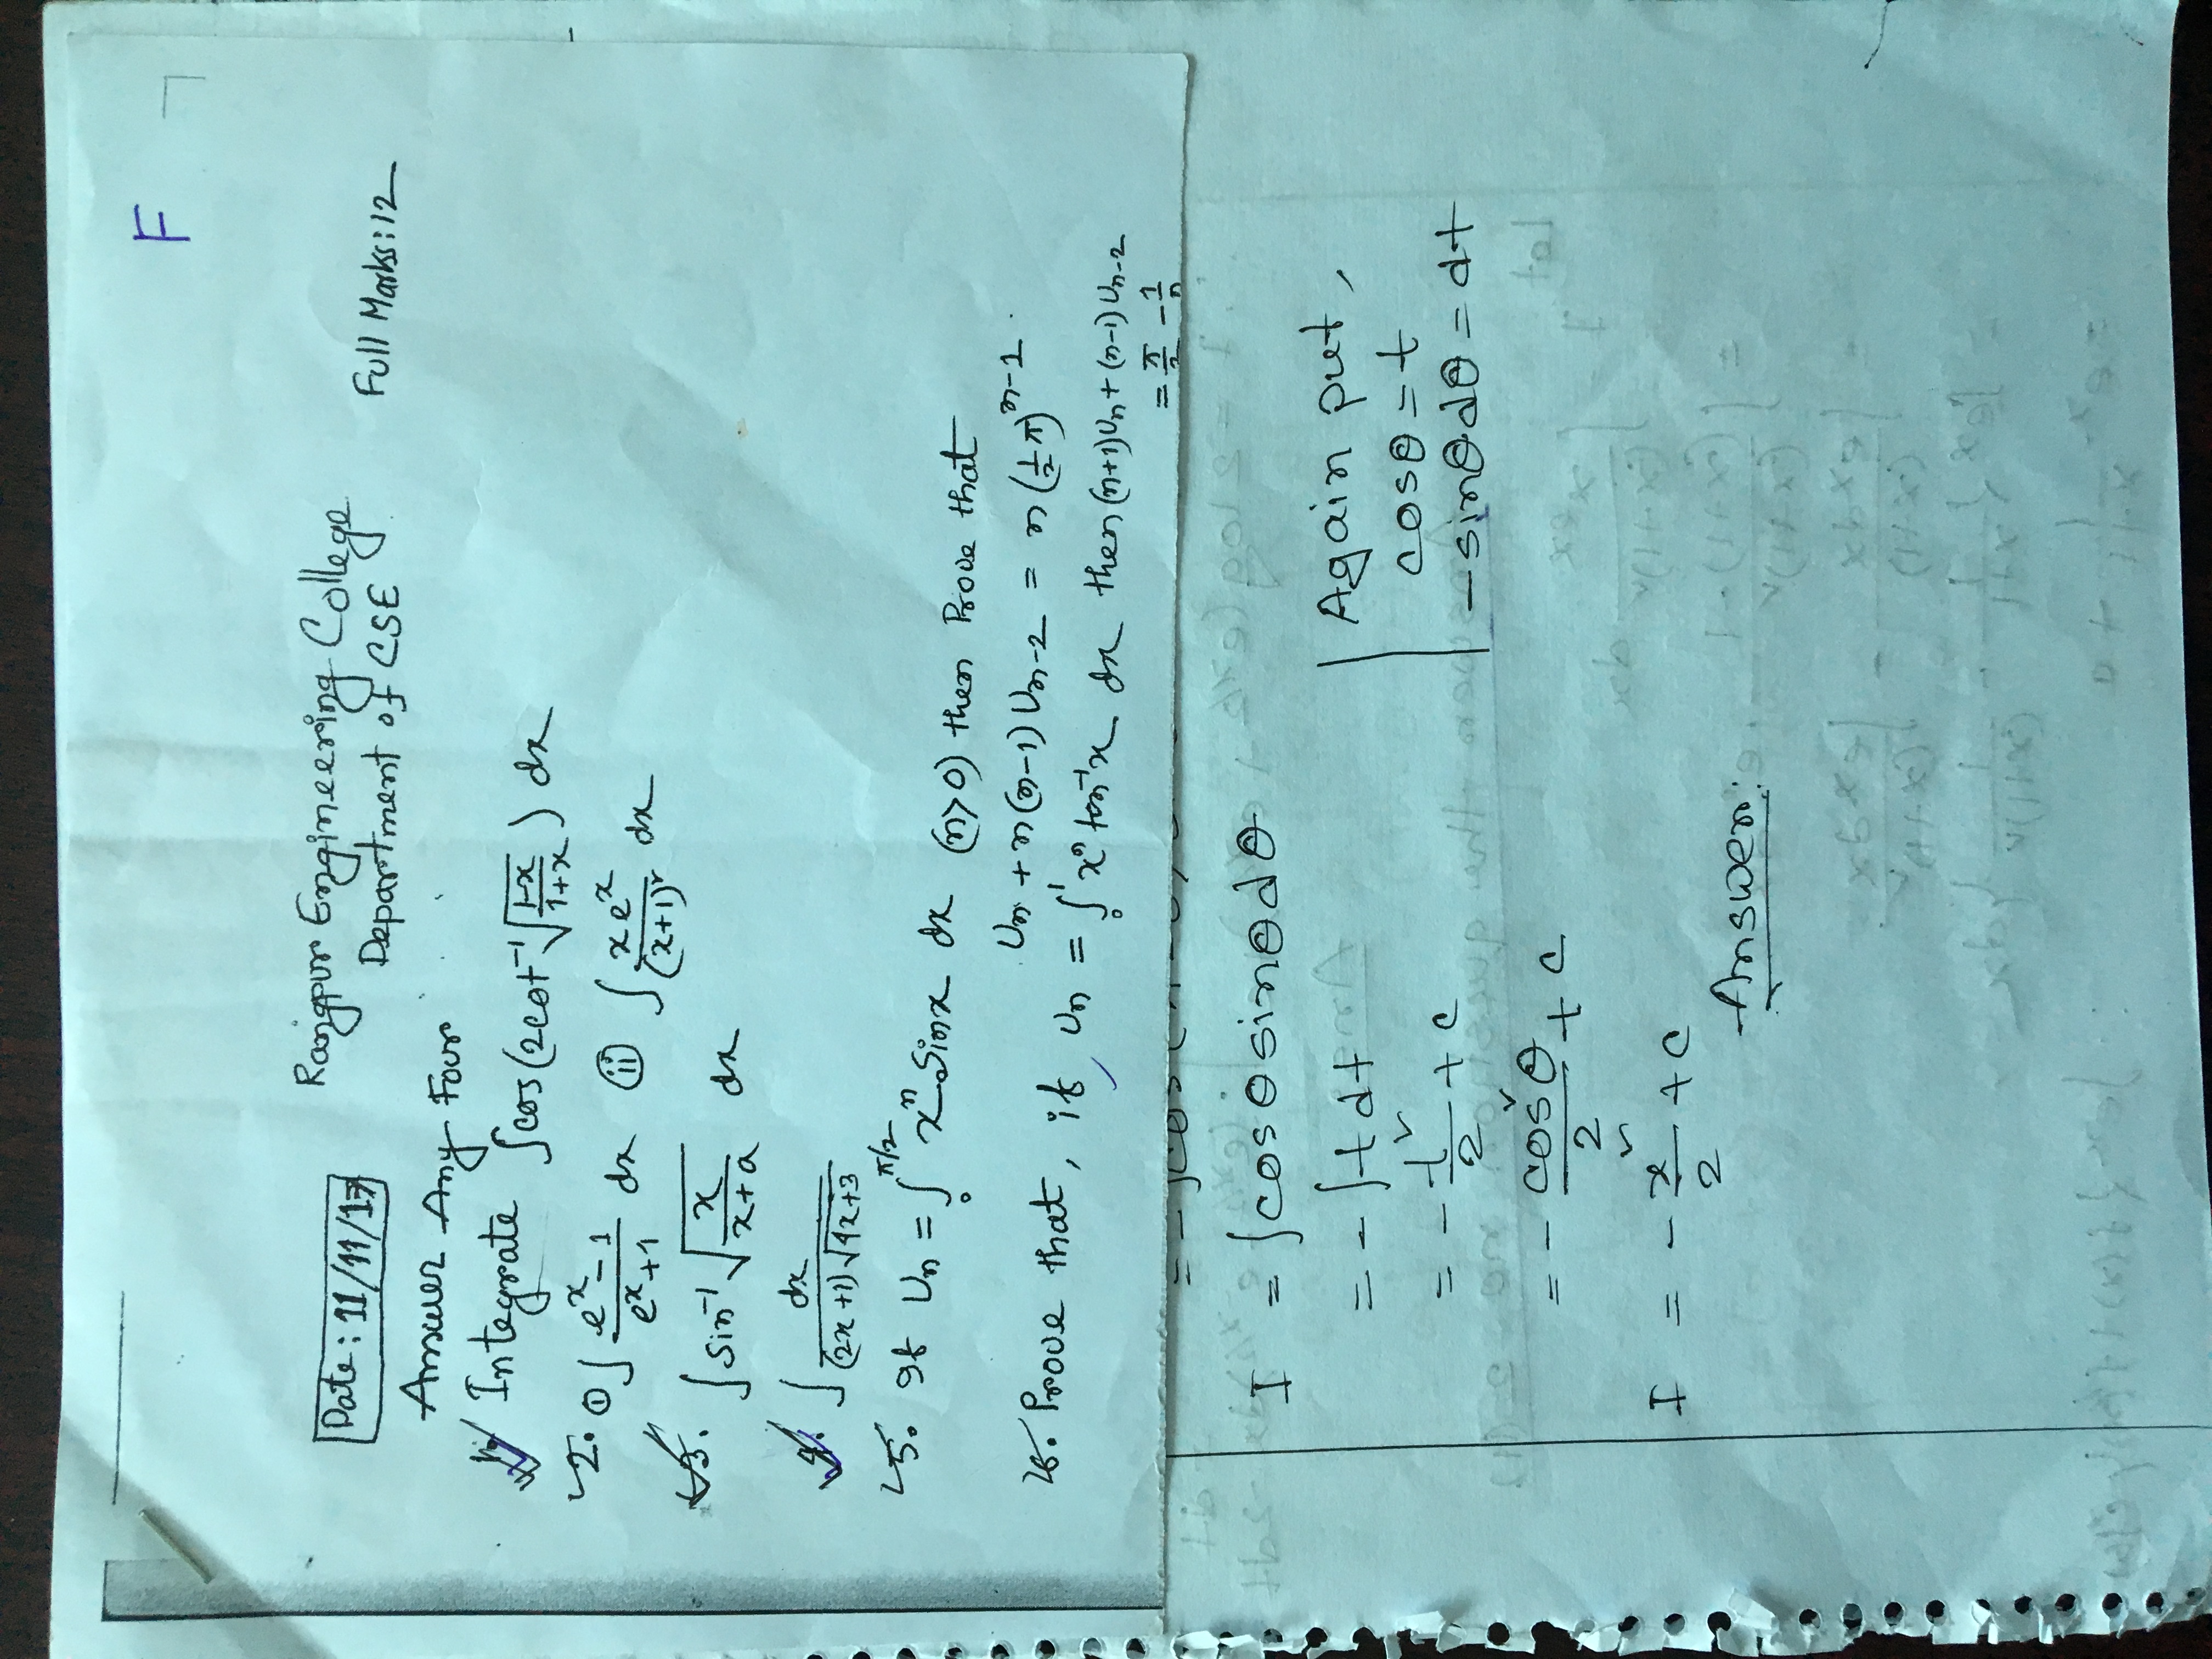 F
Rangpur Engineering College
Date: 11/11/17
Department of CSE
Full Marks: 12
Answer Any Four
1. Integrate ∫cos(2cot⁻¹√((1-x)/(1+x))) dx
2. (i) ∫ (e^x - 1)/(e^x + 1) dx (ii) ∫ (x e^x)/(x+1)² dx
3. ∫ Sin⁻¹ √(x/(x+a)) dx
4. ∫ dx/((2x+1)√(4x+3))
5. If Un = ∫₀^(π/2) x^n Sinx dx (n>0) then Prove that
Un + n(n-1) Un-2 = n(½π)^(n-1).
6. Prove that, if Un = ∫₀¹ x^n tan⁻¹x dx then (n+1)Un + (n-1)Un-2
= π/2 - 1/n
I = ∫cosθ sinθ dθ
= - ∫t dt
= - t²/2 + c
= - cos²θ/2 + c
I = - x²/2 + c
Answer:
Again put,
cosθ = t
-sinθ dθ = dt